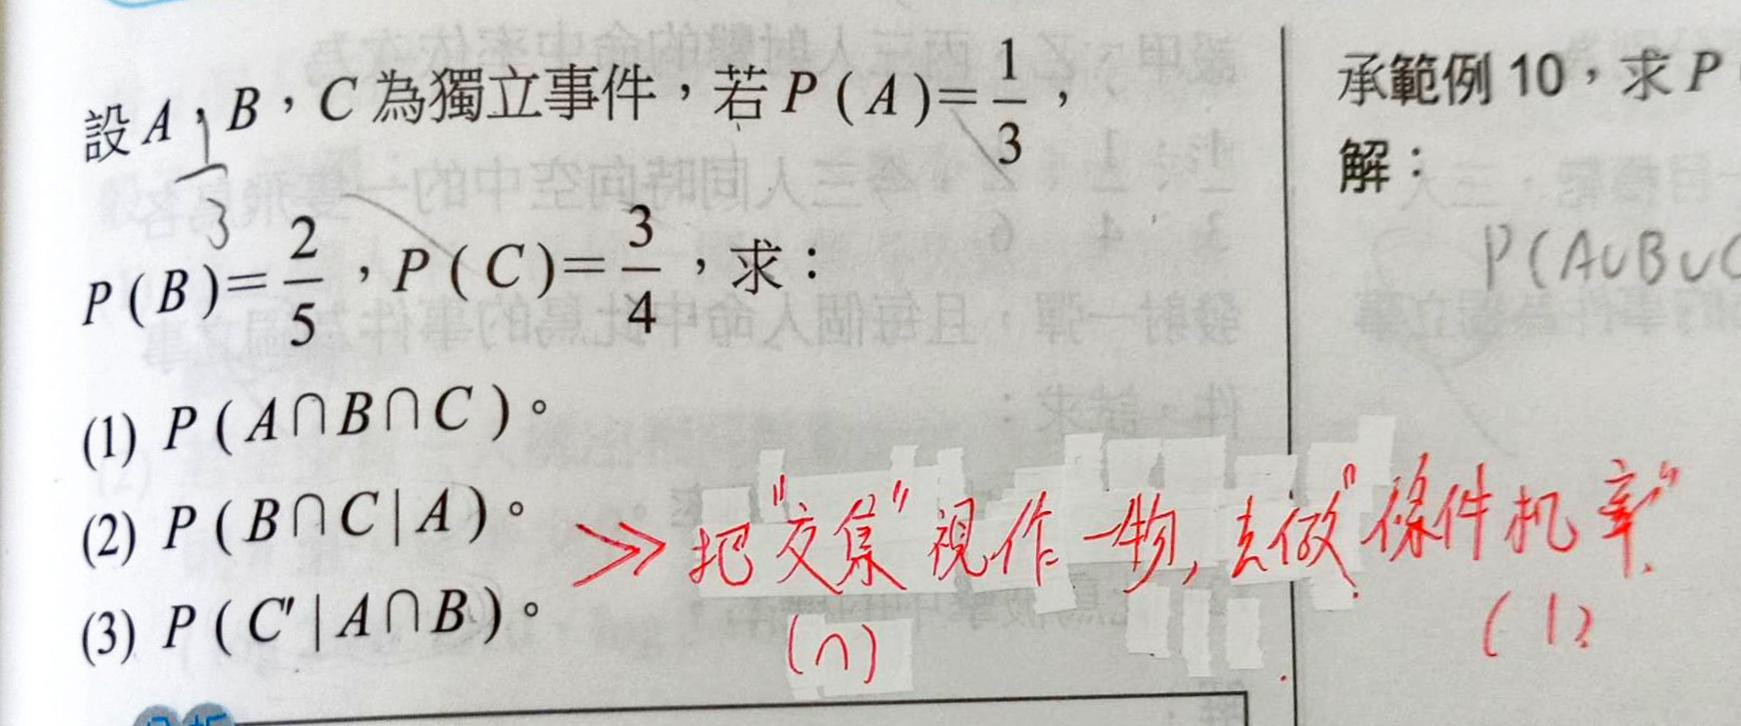 設A,B,C為獨立事件,若P(A)=1/3,
P(B)=2/5,P(C)=3/4,求:
(1) P(A∩B∩C)。
(2) P(B∩C|A)。
(3) P(C'|A∩B)。
>> 把"交集"視作一物,去做"條件机率".
(∩)
(|)
1
3
承範例10,求P
解:
P(A∪B∪C